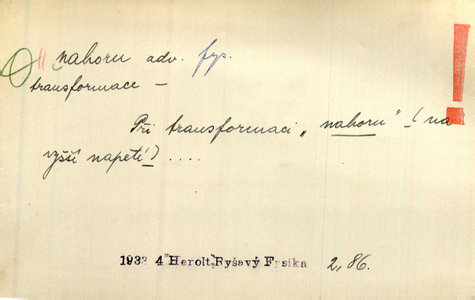 nahoru adv. fys.
transformace –
Při transformaci „nahoru" (na
vyšší napětí) ....
1933 4 Herolt, Ryšavý Fysika 2, 86.